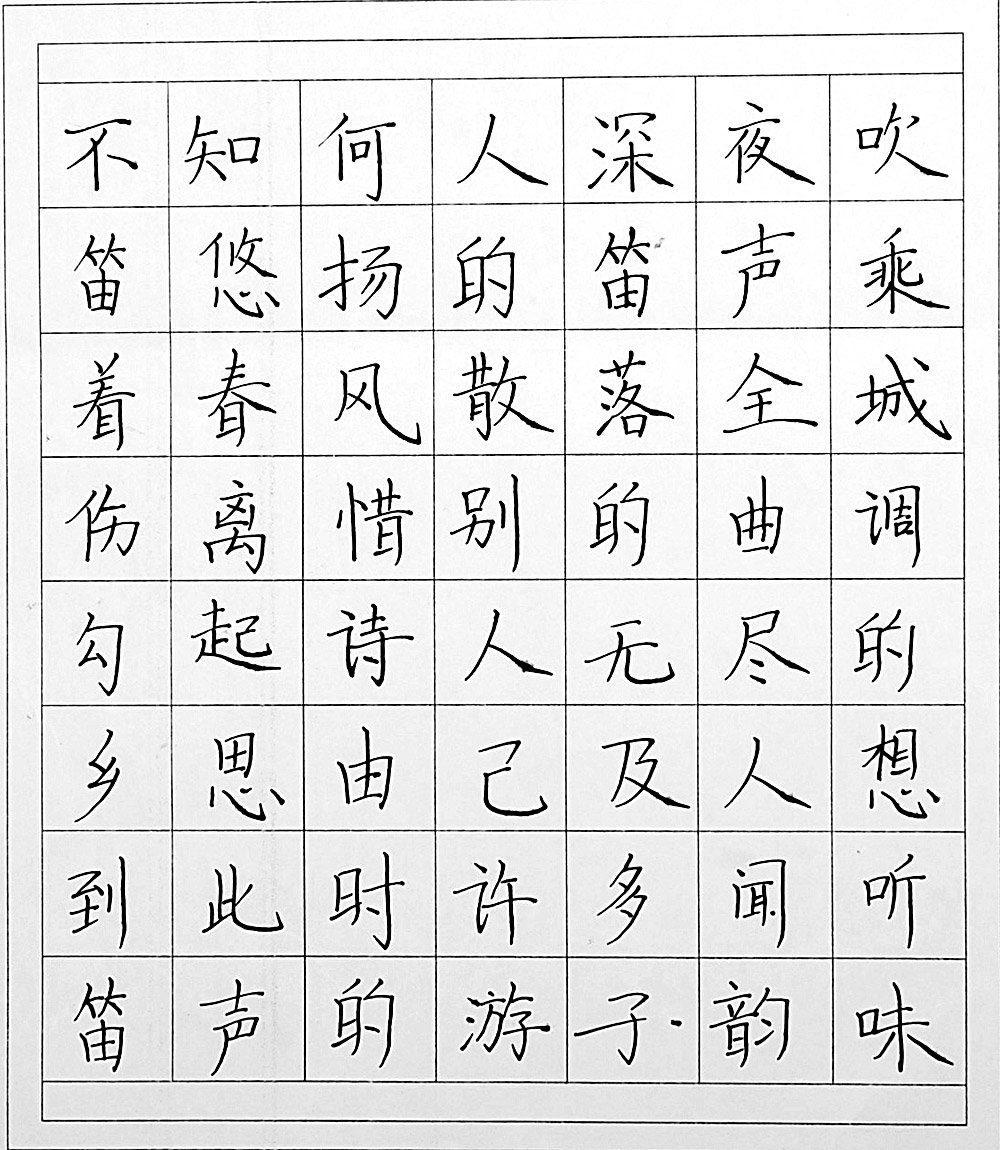 不知何人深夜吹
笛悠扬的笛声乘
着春风散落全城
伤离惜别的曲调
勾起诗人无尽的
乡思由己及人想
到此时许多闻听
笛声的游子·韵味